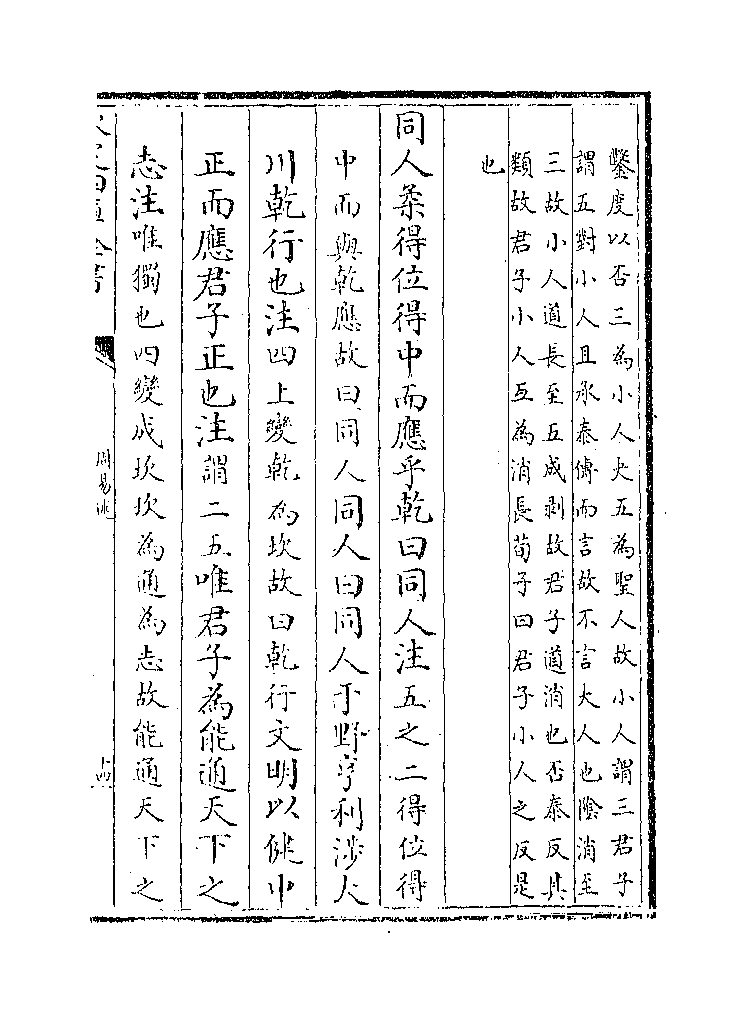 鑿度以否三為小人大五為聖人故小人謂三君子
謂五對小人且承泰傳而言故不言大人也陰消至
三故小人道長至五成剥故君子道消也否泰反其
類故君子小人互為消長荀子曰君子小人之反是
也
同人柔得位得中而應乎乾曰同人注五之二得位得
中而與乾應故曰同人同人曰同人于野亨利涉大
川乾行也注四上變乾為坎故曰乾行文明以健中
正而應君子正也注謂二五唯君子為能通天下之
志注唯獨也四變成坎坎為通為志故能通天下之
周易述